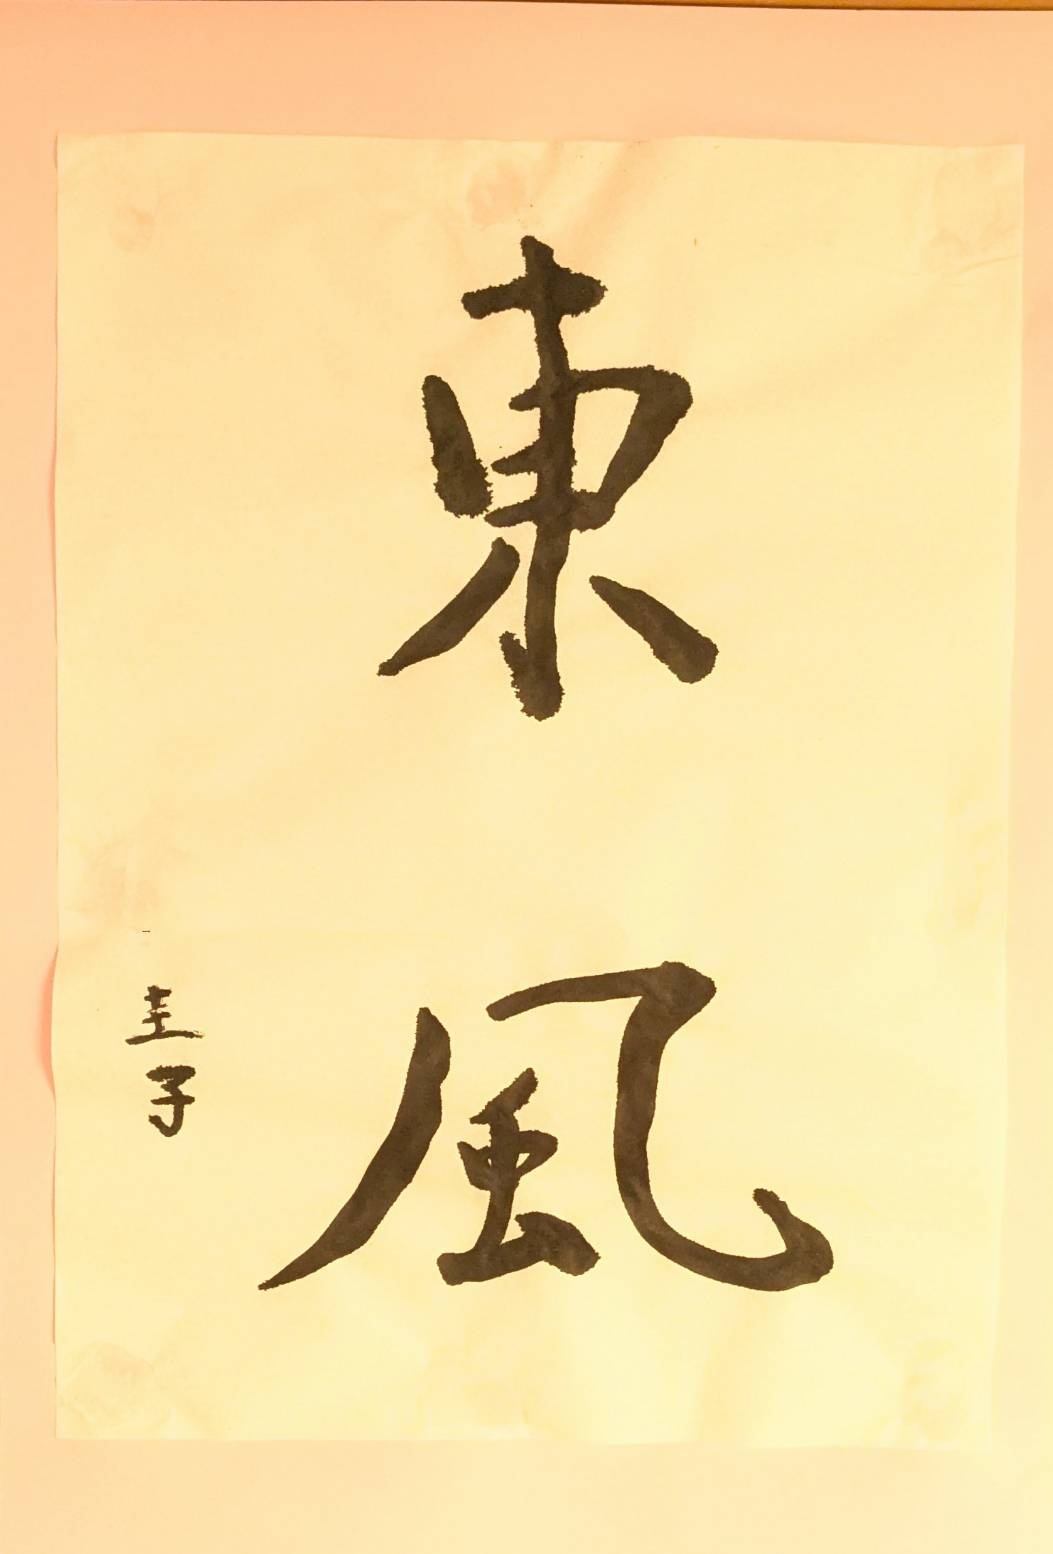 東風
圭子